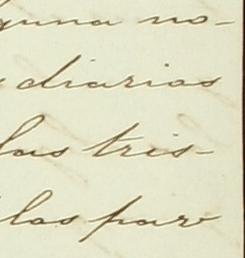 guna no-
diarias
las tris-
las par